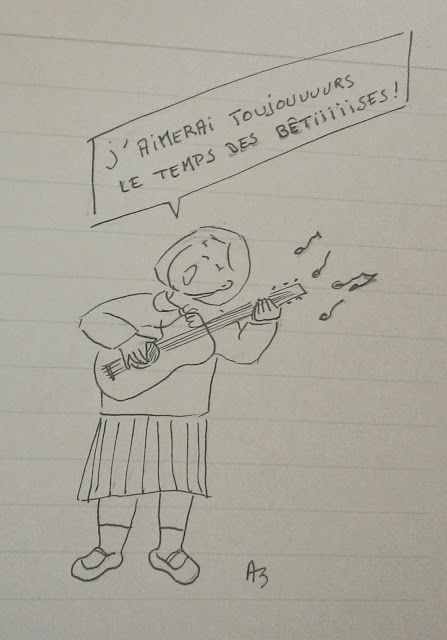 J'AiMERAi TOUJOUUUURS
LE TEMPS DES BÊTiiiiiSES !